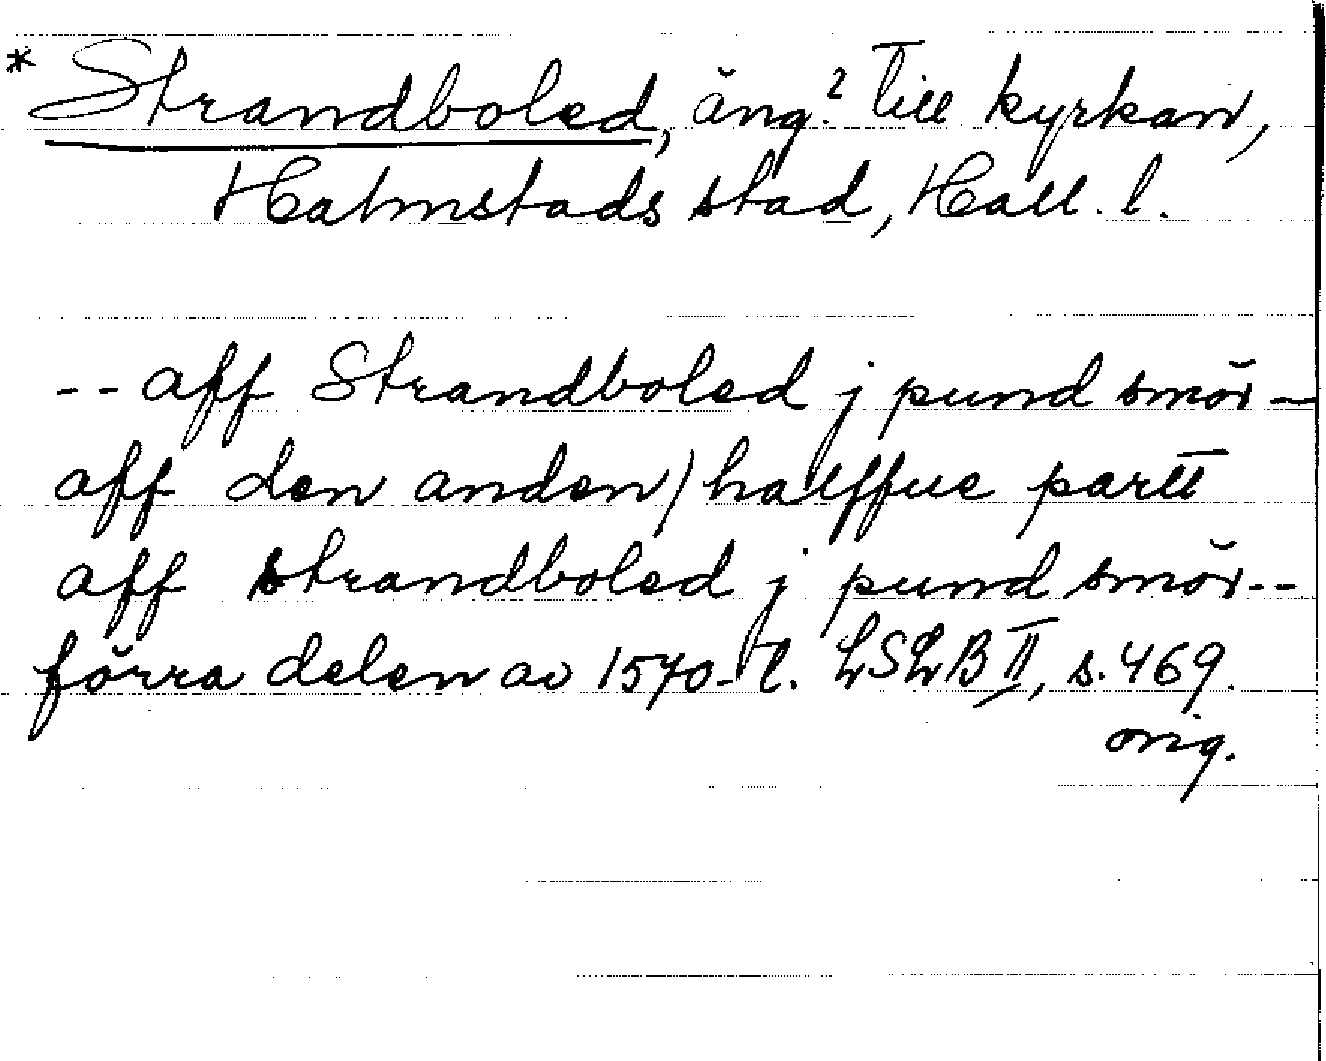 * Strandboled, äng? till kyrkan,
Halmstads stad, Hall. l.
-- aff Strandboled j pund smör –
aff den anden) halffue partt
aff strandboled j pund smör --
förra delen av 1570-t. LSLB II, s. 469.
orig.